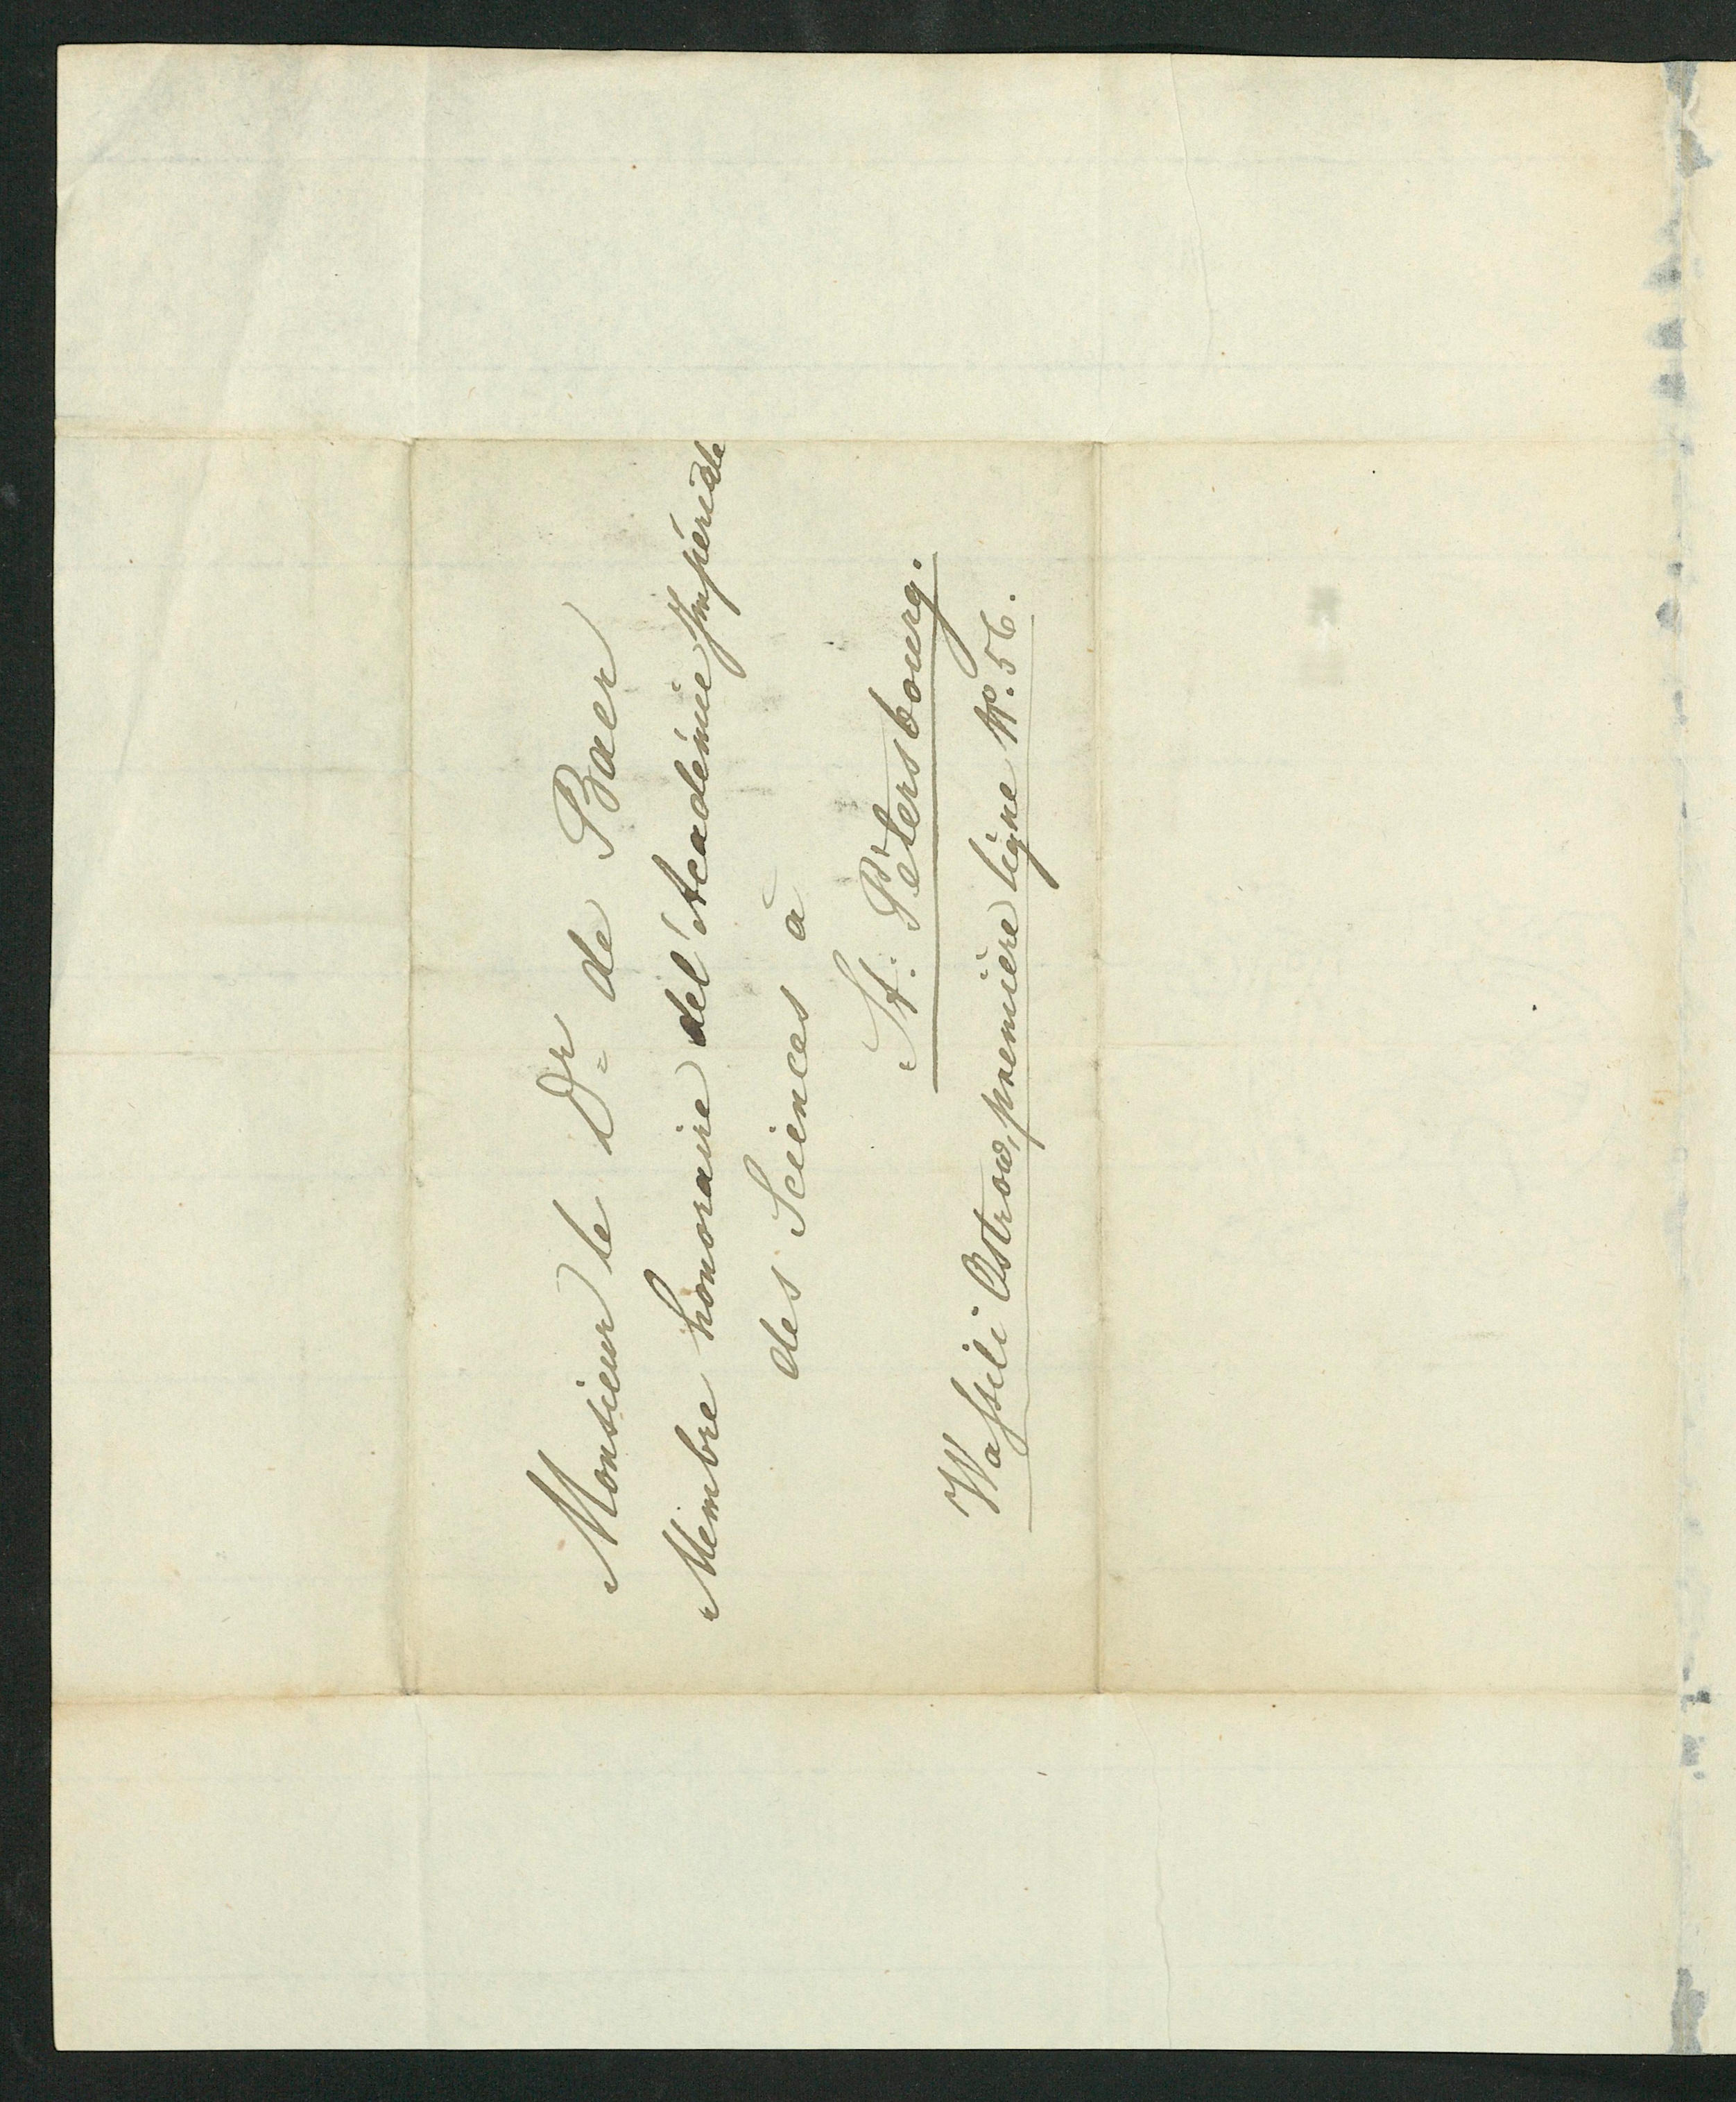 Monsieur le Dr de Baer
Membre honoraire del'Académie Impériale
des Sciences à
St: Pétersbourg.
Wassili Ostrow, première ligne No. 56.